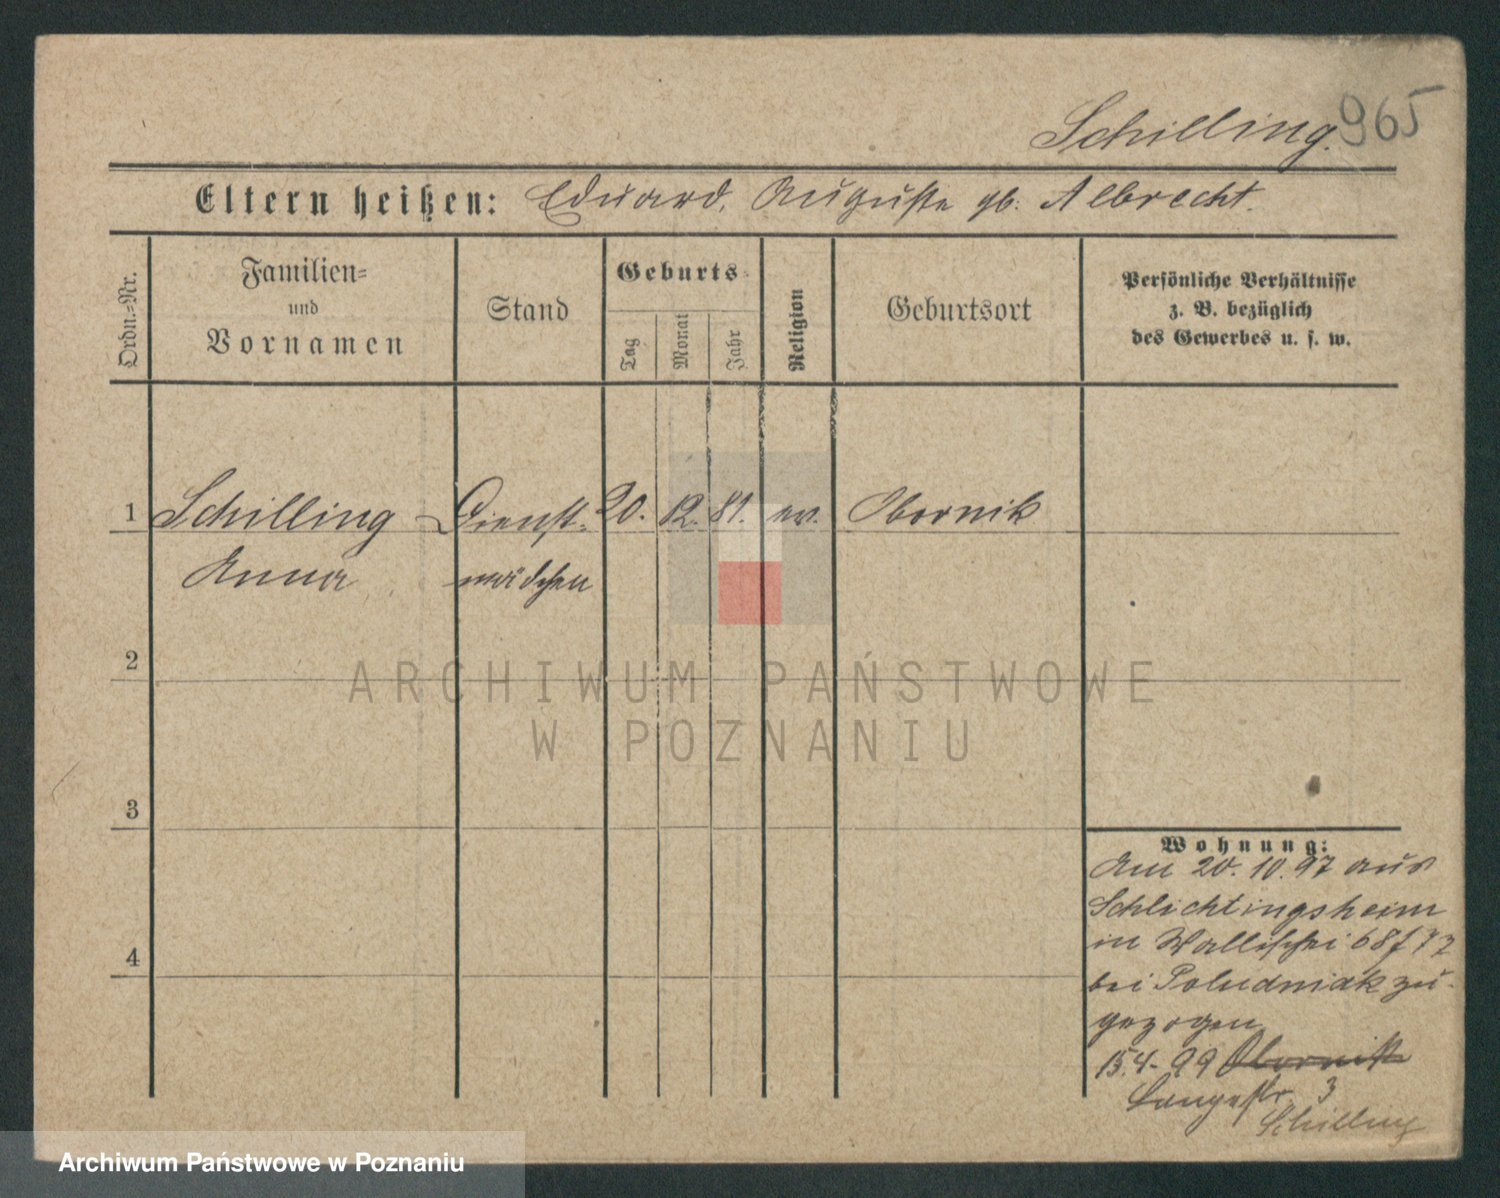 Schilling. 965
Eltern heißen: Eduard, Auguste gb. Albrecht.
Ordn.=Nr.
Familien=
und
Vornamen
Stand
Geburts=
Tag
Monat
Jahr
Religion
Geburtsort
Persönliche Verhältnisse
z. B. bezüglich
des Gewerbes u. s. w.
1 Schilling Dienst- 20. 12. 81. ev. Obornik
Anna mädchen
2
3
4
Wohnung:
Am 20. 10. 97 aus
Schlichtingsheim
in Wallischei 68/72
bei Poludniak zu-
gezogen
15.4.99 Obornik
Langestr. 3
Schilling
ARCHIWUM PAŃSTWOWE
W POZNANIU
Archiwum Państwowe w Poznaniu